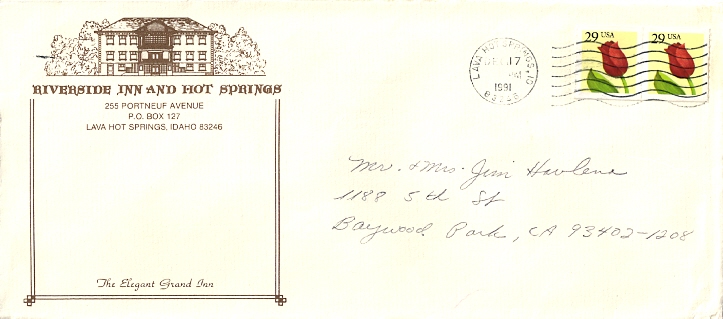 RIVERSIDE INN AND HOT SPRINGS
255 PORTNEUF AVENUE
P.O. BOX 127
LAVA HOT SPRINGS, IDAHO 83246
The Elegant Grand Inn
LAVA HOT SPRINGS, ID
17
PM
1991
29 USA
29 USA
Mr. + Mrs. Jim Havlena
1188 5th St
Baywood Park, CA 93402-1208